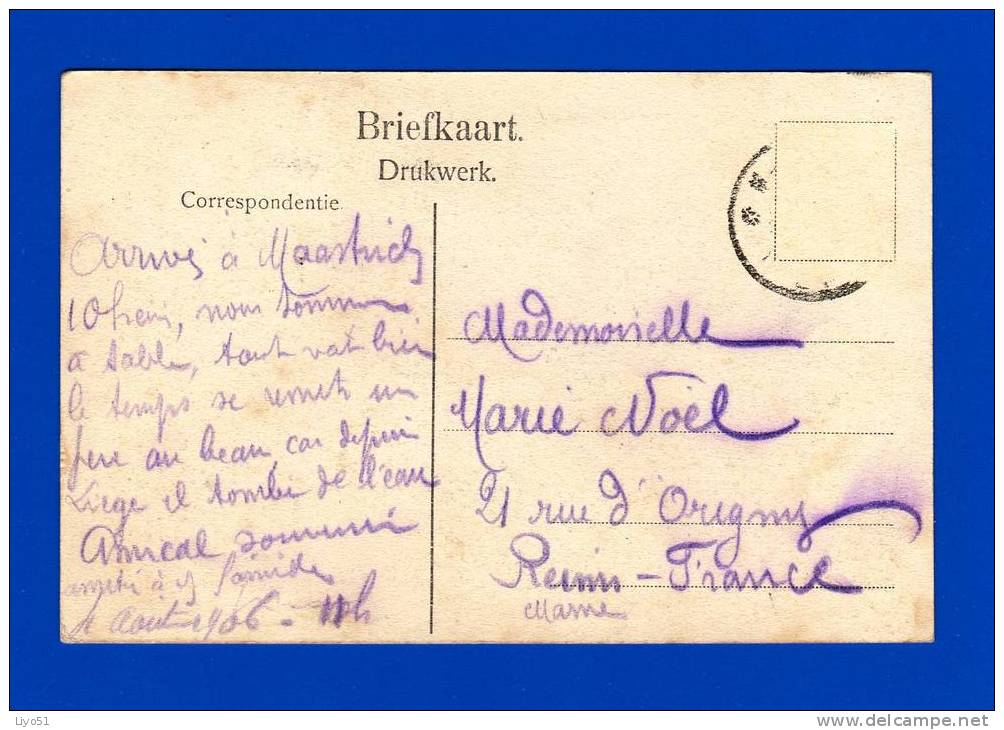 Briefkaart.
Drukwerk.
Correspondentie
Arrivés à Maastrich
10 h, nous sommes
à table, tout va bien
le temps se remet un
peu au beau, car depuis
Liège il tombe de l'eau
Amical souvenir
Août 1906 - 11h
Mademoiselle
Marie Noël
21 rue d'Origny
Reims - France
Marne
Liyo51
delcampe.net